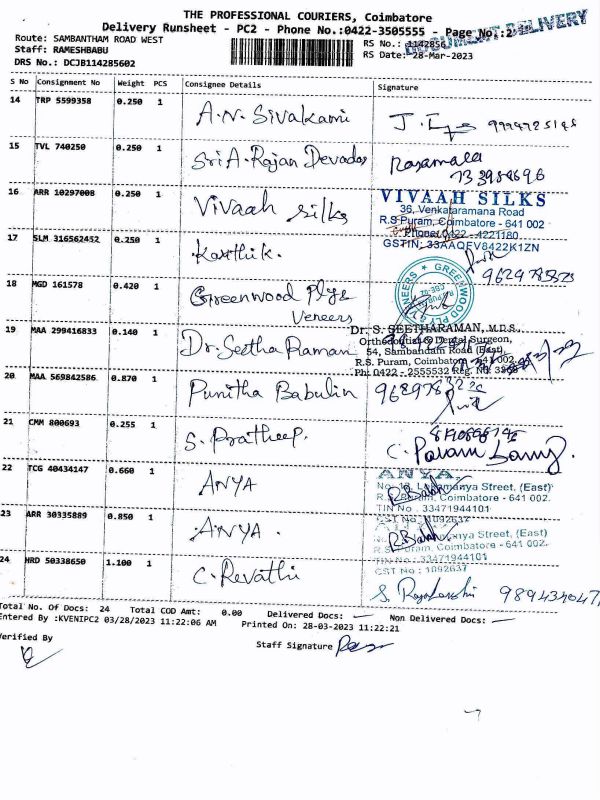 THE PROFESSIONAL COURIERS, Coimbatore
Delivery Runsheet - PC2 - Phone No.:0422-3505555 - Page No.:2
DOCUMENT DELIVERY
Route: SAMBANTHAM ROAD WEST
RS No.: 1142856
Staff: RAMESHBABU
RS Date: 28-Mar-2023
DRS No.: DCJB114285602
S No Consignment No Weight PCS Consignee Details Signature
14 TRP 5599358 0.250 1 A.N. Sivakami
15 TVL 740250 0.250 1 Sri A. Rajan Devadas
16 ARR 10297008 0.250 1 Vivaah Silks
VIVAAH SILKS
36, Venkataramana Road
R.S Puram, Coimbatore - 641 002
Phone: 0422 - 4221180
GSTIN: 33AAQFV8422K1ZN
17 SLM 316562452 0.250 1 Karthik.
9629785523
18 MGD 161578 0.420 1 Greenwood Plys
Veneers
19 MAA 299416833 0.140 1 Dr. Seetha Raman
Dr. S. SEETHARAMAN, M.D.S.,
Orthodontist & Dental Surgeon,
54, Sambandam Road (East),
R.S. Puram, Coimbatore - 641 002.
Ph: 0422 - 2555532 Reg. No.
20 MAA 569842586 0.870 1 Punitha Babulin
21 CMM 800693 0.255 1 S. Pratheep.
22 TCG 40434147 0.660 1 ANYA
ANYA,
Lokamanya Street, (East)
R.S. Puram, Coimbatore - 641 002.
TIN No : 33471944101
CST No : 1092637
23 ARR 30335889 0.850 1 ANYA.
Street, (East)
R.S. Puram, Coimbatore - 641 002.
TIN No : 33471944101
CST No : 1092637
24 HRD 50338650 1.100 1 C. Revathi
Total No. Of Docs: 24 Total COD Amt: 0.00 Delivered Docs: Non Delivered Docs:
Entered By :KVENIPC2 03/28/2023 11:22:06 AM Printed On: 28-03-2023 11:22:21
Verified By
Staff Signature